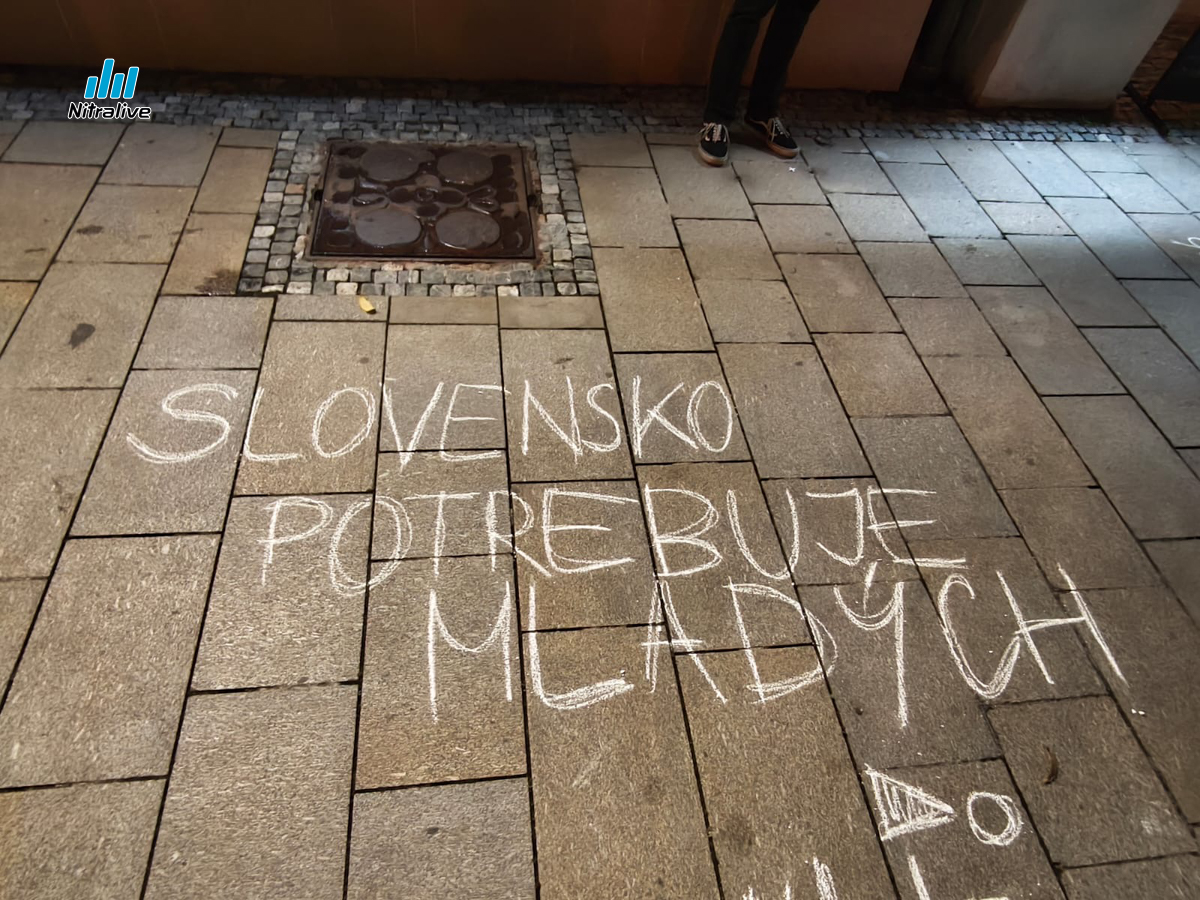 Nitralive
SLOVENSKO
POTREBUJE
MLADÝCH